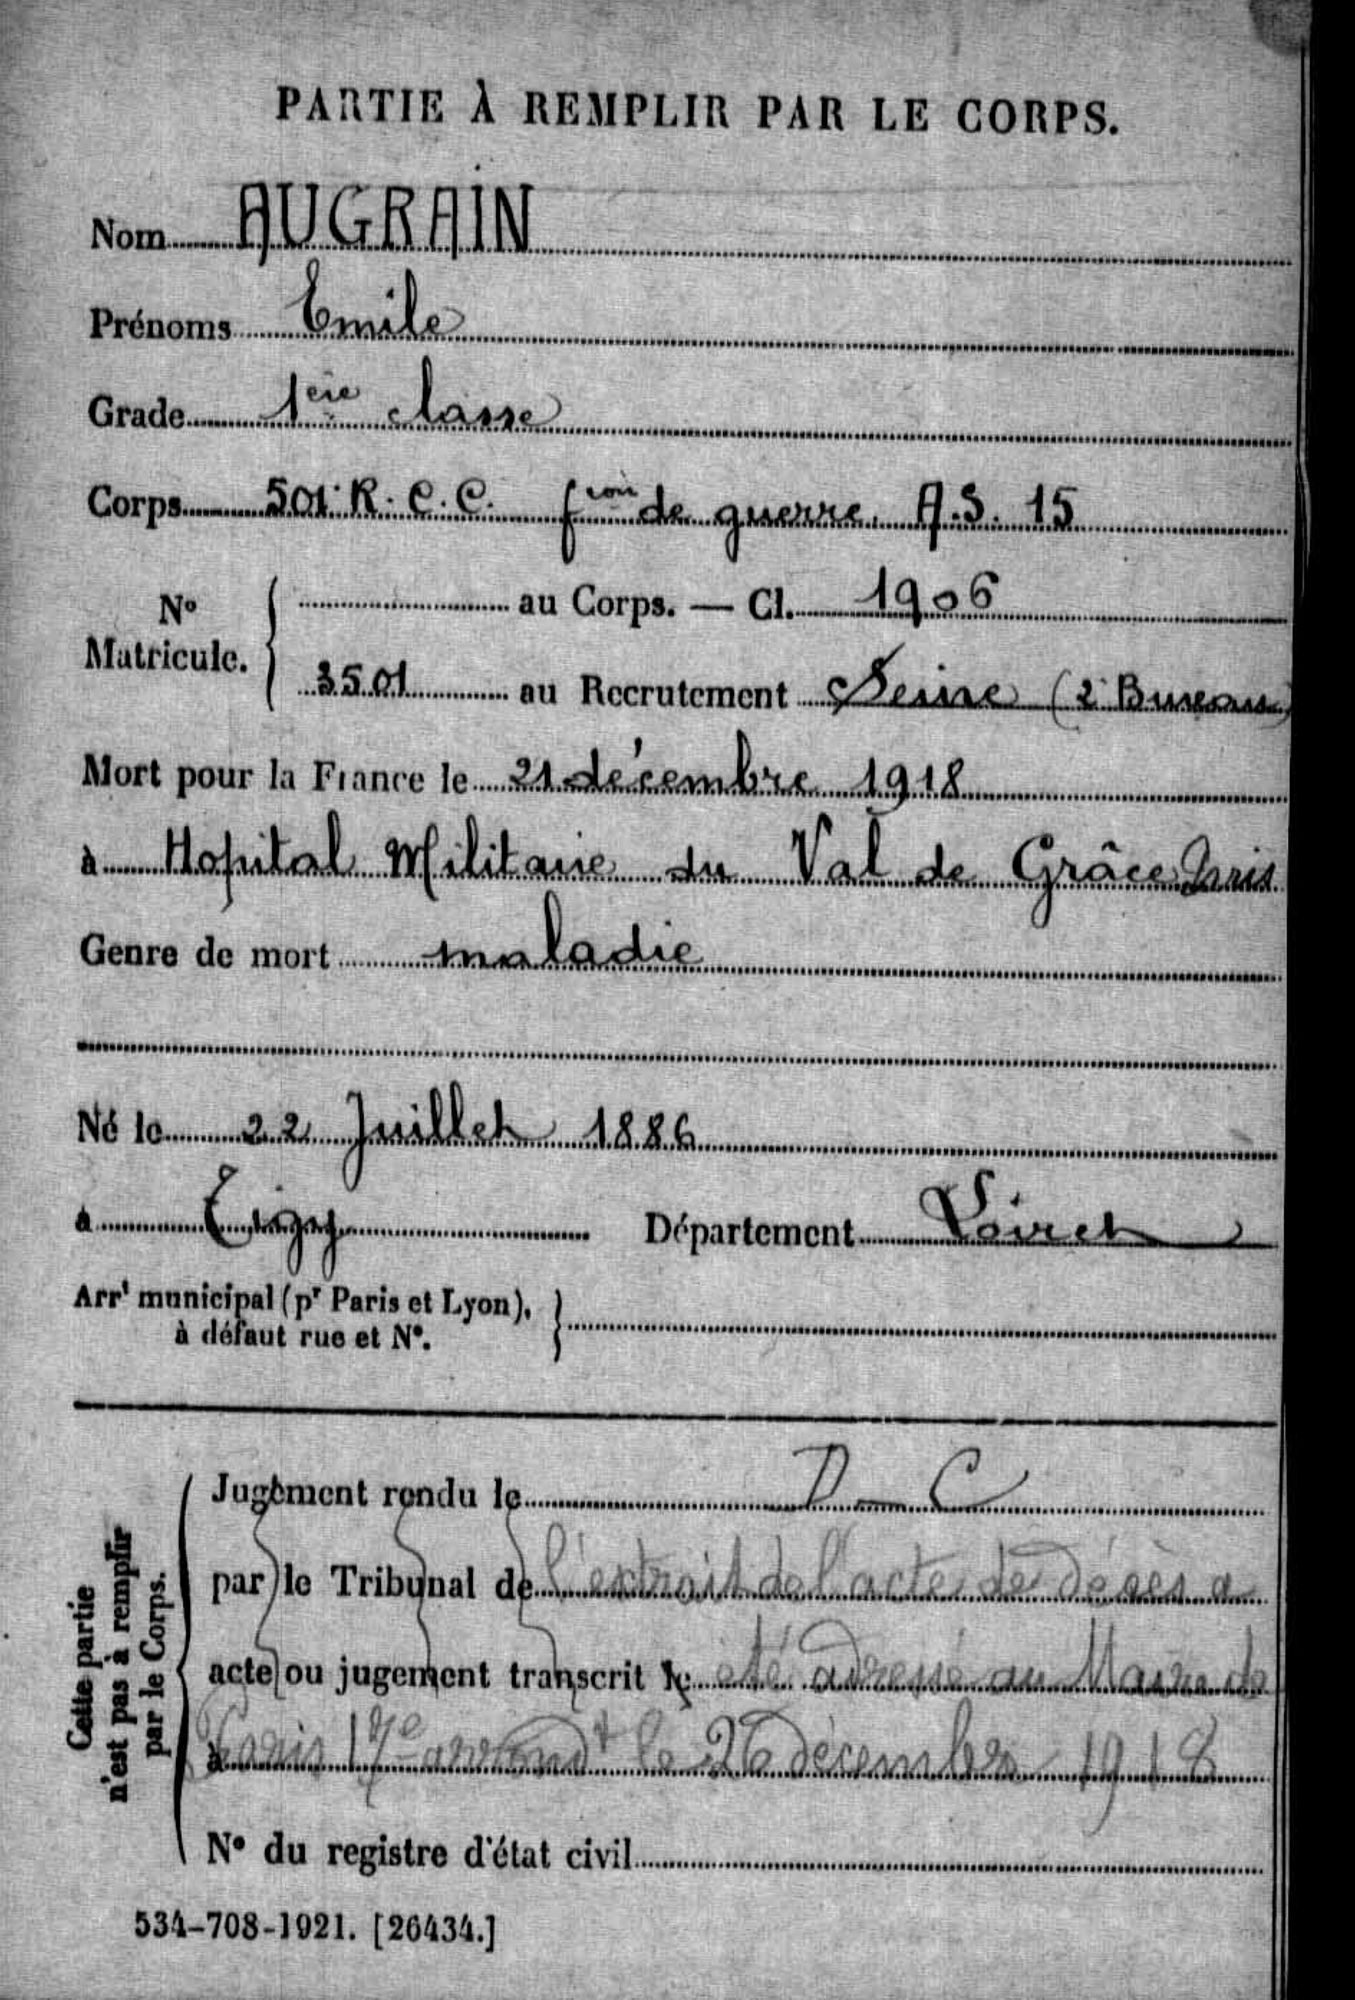 PARTIE À REMPLIR PAR LE CORPS.
Nom AUGRAIN
Prénoms Emile
Grade 1ère classe
Corps 501 R. C. C. fion de guerre. A.S. 15
No Matricule. au Corps. — Cl. 1906
3501 au Recrutement Seine (2 Bureau)
Mort pour la France le 21 décembre 1918
à Hopital Militaire du Val de Grâce Paris
Genre de mort maladie
Né le 22 Juillet 1886
à Tigy Département Loiret
Arrt municipal (pr Paris et Lyon),
à défaut rue et No.
Cette partie
n'est pas à remplir
par le Corps.
Jugement rendu le D — C
par le Tribunal de l'extrait de l'acte de décès a
acte ou jugement transcrit le été adressé au Maire de
à Paris 17e arrondt le 26 décembre 1918
No du registre d'état civil
534-708-1921. [26434.]